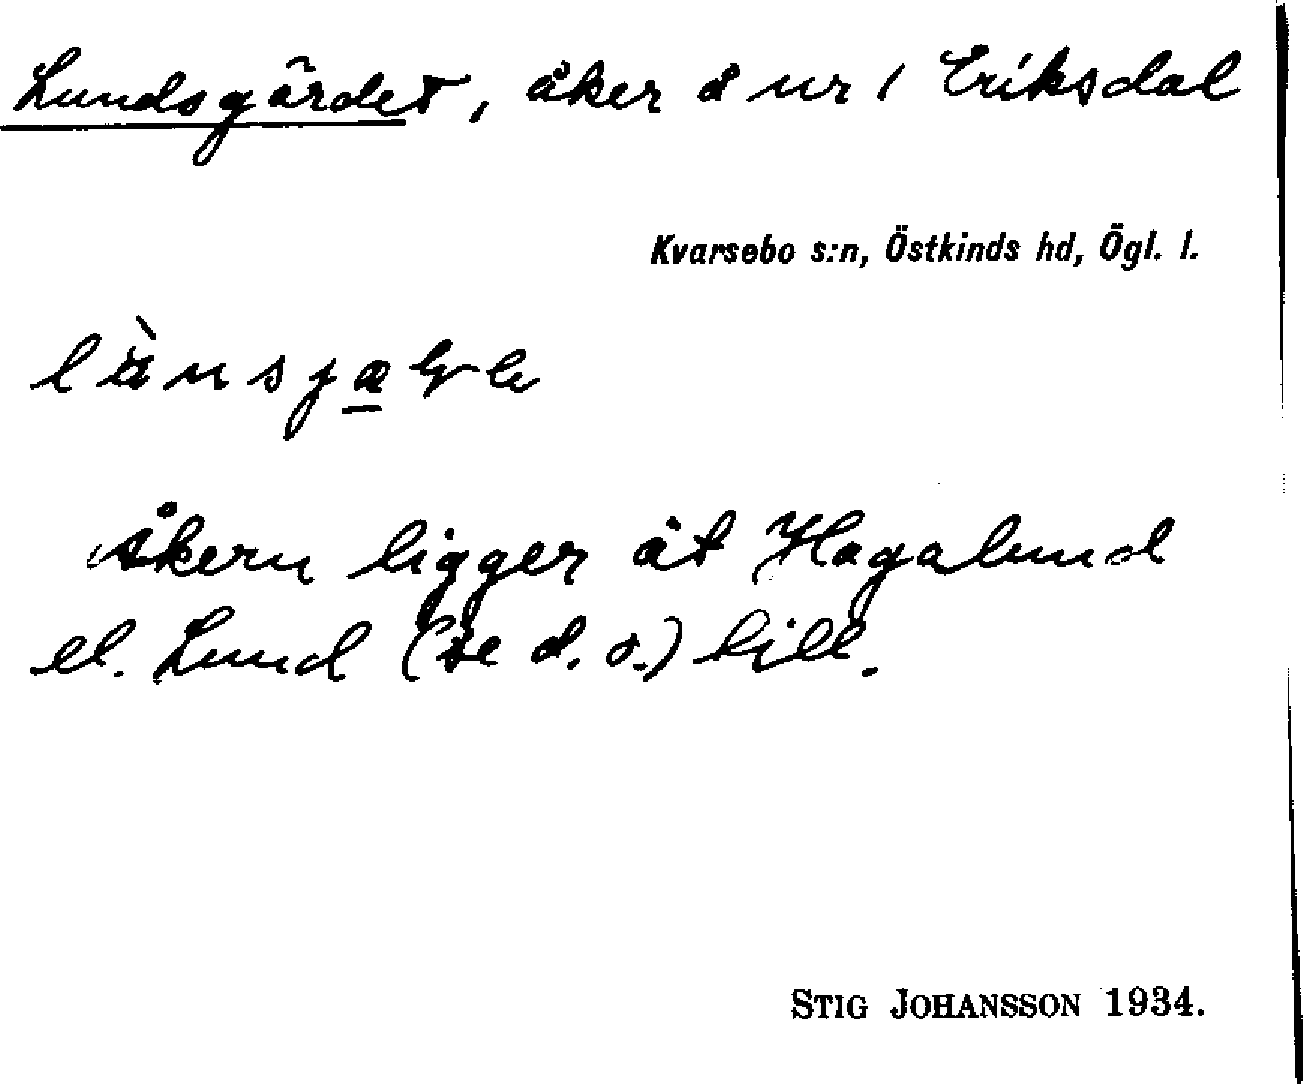 Lundsgärdet, åker å nr 1 Eriksdal
Kvarsebo s:n, Östkinds hd, Ögl. l.
Åkern ligger åt Hagalund
el. Lund (se d. o.) till.
STIG JOHANSSON 1934.